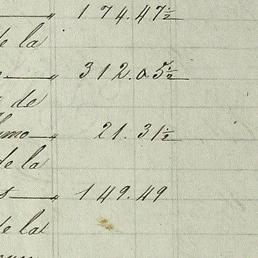 174.47½
de la
312.05½
de
21.31½
de la
149.49
de la